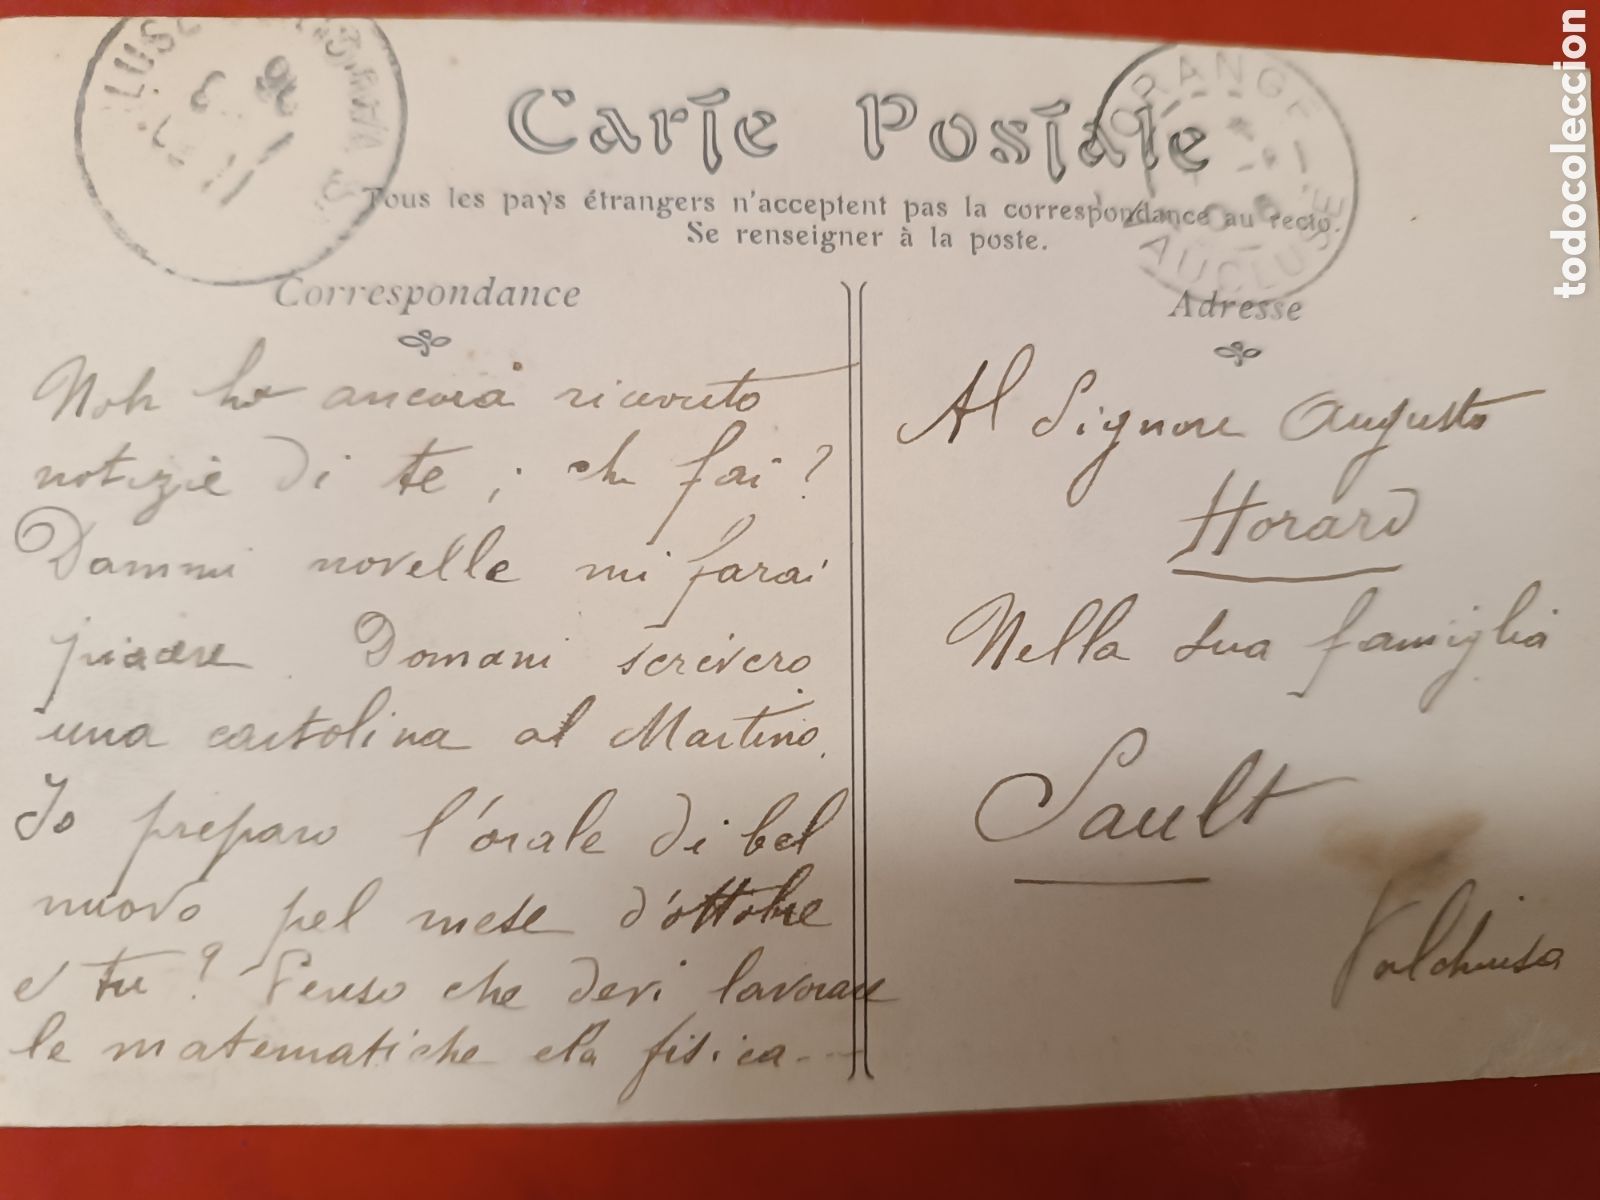 Carte Postale
Tous les pays étrangers n'acceptent pas la correspondance au recto.
Se renseigner à la poste.
Correspondance
Non ho ancora ricevuto
notizie di te ; che fai ?
Dammi novelle mi farai
piacere Domani scrivero
una cartolina al Martino.
Io preparo l'orale di bel
nuovo pel mese d'ottobre
e tu ? Penso che devi lavorare
le matematiche e la fisica ...
Adresse
Al Signore Augusto
Horard
Nella sua famiglia
Sault
Valchiusa
ORANGE
VAUCLUSE
todocoleccion